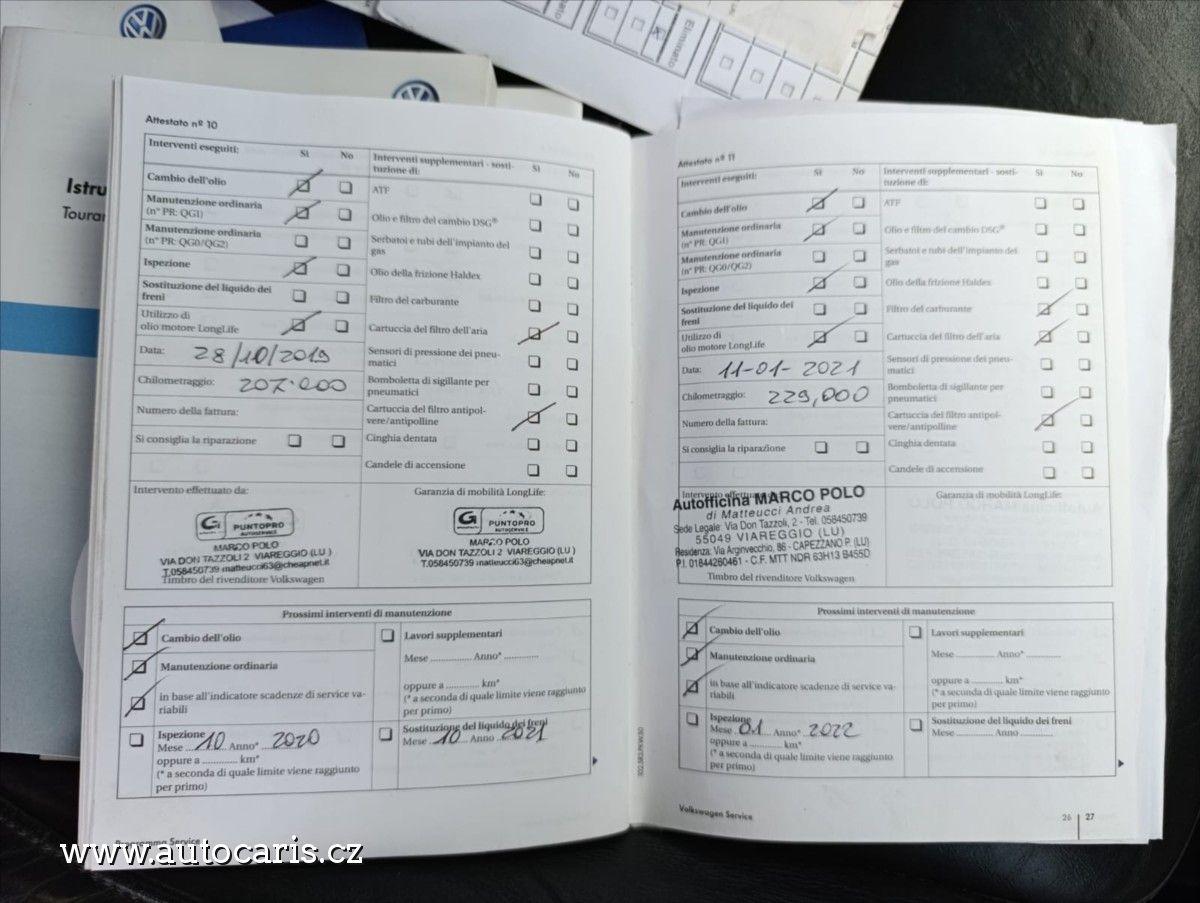 Eliminato
Istru
Touran
Attestato nº 10
Interventi eseguiti: Sì No
Cambio dell'olio
Manutenzione ordinaria
(nº PR: QG1)
Manutenzione ordinaria
(nº PR: QG0/QG2)
Ispezione
Sostituzione del liquido dei
freni
Utilizzo di
olio motore LongLife
Data: 28/10/2019
Chilometraggio: 207.000
Numero della fattura:
Si consiglia la riparazione
Interventi supplementari - sosti-
tuzione di: Sì No
ATF
Olio e filtro del cambio DSG®
Serbatoi e tubi dell'impianto del
gas
Olio della frizione Haldex
Filtro del carburante
Cartuccia del filtro dell'aria
Sensori di pressione dei pneu-
matici
Bomboletta di sigillante per
pneumatici
Cartuccia del filtro antipol-
vere/antipolline
Cinghia dentata
Candele di accensione
Intervento effettuato da:
PUNTOPRO
AUTOSERVICE
MARCO POLO
VIA DON TAZZOLI 2 VIAREGGIO (LU )
T.058450739 matteucci63@cheapnet.it
Timbro del rivenditore Volkswagen
Garanzia di mobilità LongLife:
PUNTOPRO
AUTOSERVICE
MARCO POLO
VIA DON TAZZOLI 2 VIAREGGIO (LU )
T.058450739 matteucci63@cheapnet.it
Prossimi interventi di manutenzione
Cambio dell'olio
Manutenzione ordinaria
in base all'indicatore scadenze di service va-
riabili
Ispezione
Mese 10 Anno* 2020
oppure a ............ km*
(* a seconda di quale limite viene raggiunto
per primo)
Lavori supplementari
Mese .............. Anno* ............
oppure a ............ km*
(* a seconda di quale limite viene raggiunto
per primo)
Sostituzione del liquido dei freni
Mese 10 Anno 2021
Programma Service
Attestato nº 11
Interventi eseguiti: Sì No
Cambio dell'olio
Manutenzione ordinaria
(nº PR: QG1)
Manutenzione ordinaria
(nº PR: QG0/QG2)
Ispezione
Sostituzione del liquido dei
freni
Utilizzo di
olio motore LongLife
Data: 11-01-2021
Chilometraggio: 229,000
Numero della fattura:
Si consiglia la riparazione
Interventi supplementari - sosti-
tuzione di: Sì No
ATF
Olio e filtro del cambio DSG®
Serbatoi e tubi dell'impianto del
gas
Olio della frizione Haldex
Filtro del carburante
Cartuccia del filtro dell'aria
Sensori di pressione dei pneu-
matici
Bomboletta di sigillante per
pneumatici
Cartuccia del filtro antipol-
vere/antipolline
Cinghia dentata
Candele di accensione
Intervento effettuato
Autofficina MARCO POLO
di Matteucci Andrea
Sede Legale: Via Don Tazzoli, 2 - Tel. 058450739
55049 VIAREGGIO (LU)
Residenza: Via Arginvecchio, 86 - CAPEZZANO P. (LU)
P.I. 01844260461 - C.F. MTT NDR 63H13 B455D
Timbro del rivenditore Volkswagen
Garanzia di mobilità LongLife:
Prossimi interventi di manutenzione
Cambio dell'olio
Manutenzione ordinaria
in base all'indicatore scadenze di service va-
riabili
Ispezione
Mese 01 Anno* 2022
oppure a ............ km*
(* a seconda di quale limite viene raggiunto
per primo)
Lavori supplementari
Mese .............. Anno* ............
oppure a ............ km*
(* a seconda di quale limite viene raggiunto
per primo)
Sostituzione del liquido dei freni
Mese .............. Anno ............
Volkswagen Service
26 27
www.autocaris.cz